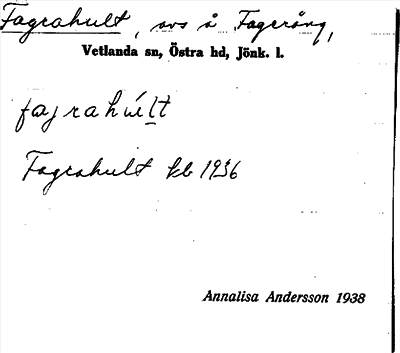 Fagrahult, avs å Fageräng,
Vetlanda sn, Östra hd, Jönk. l.
fagrahult
Fagrahult kb 1936
Annalisa Andersson 1938